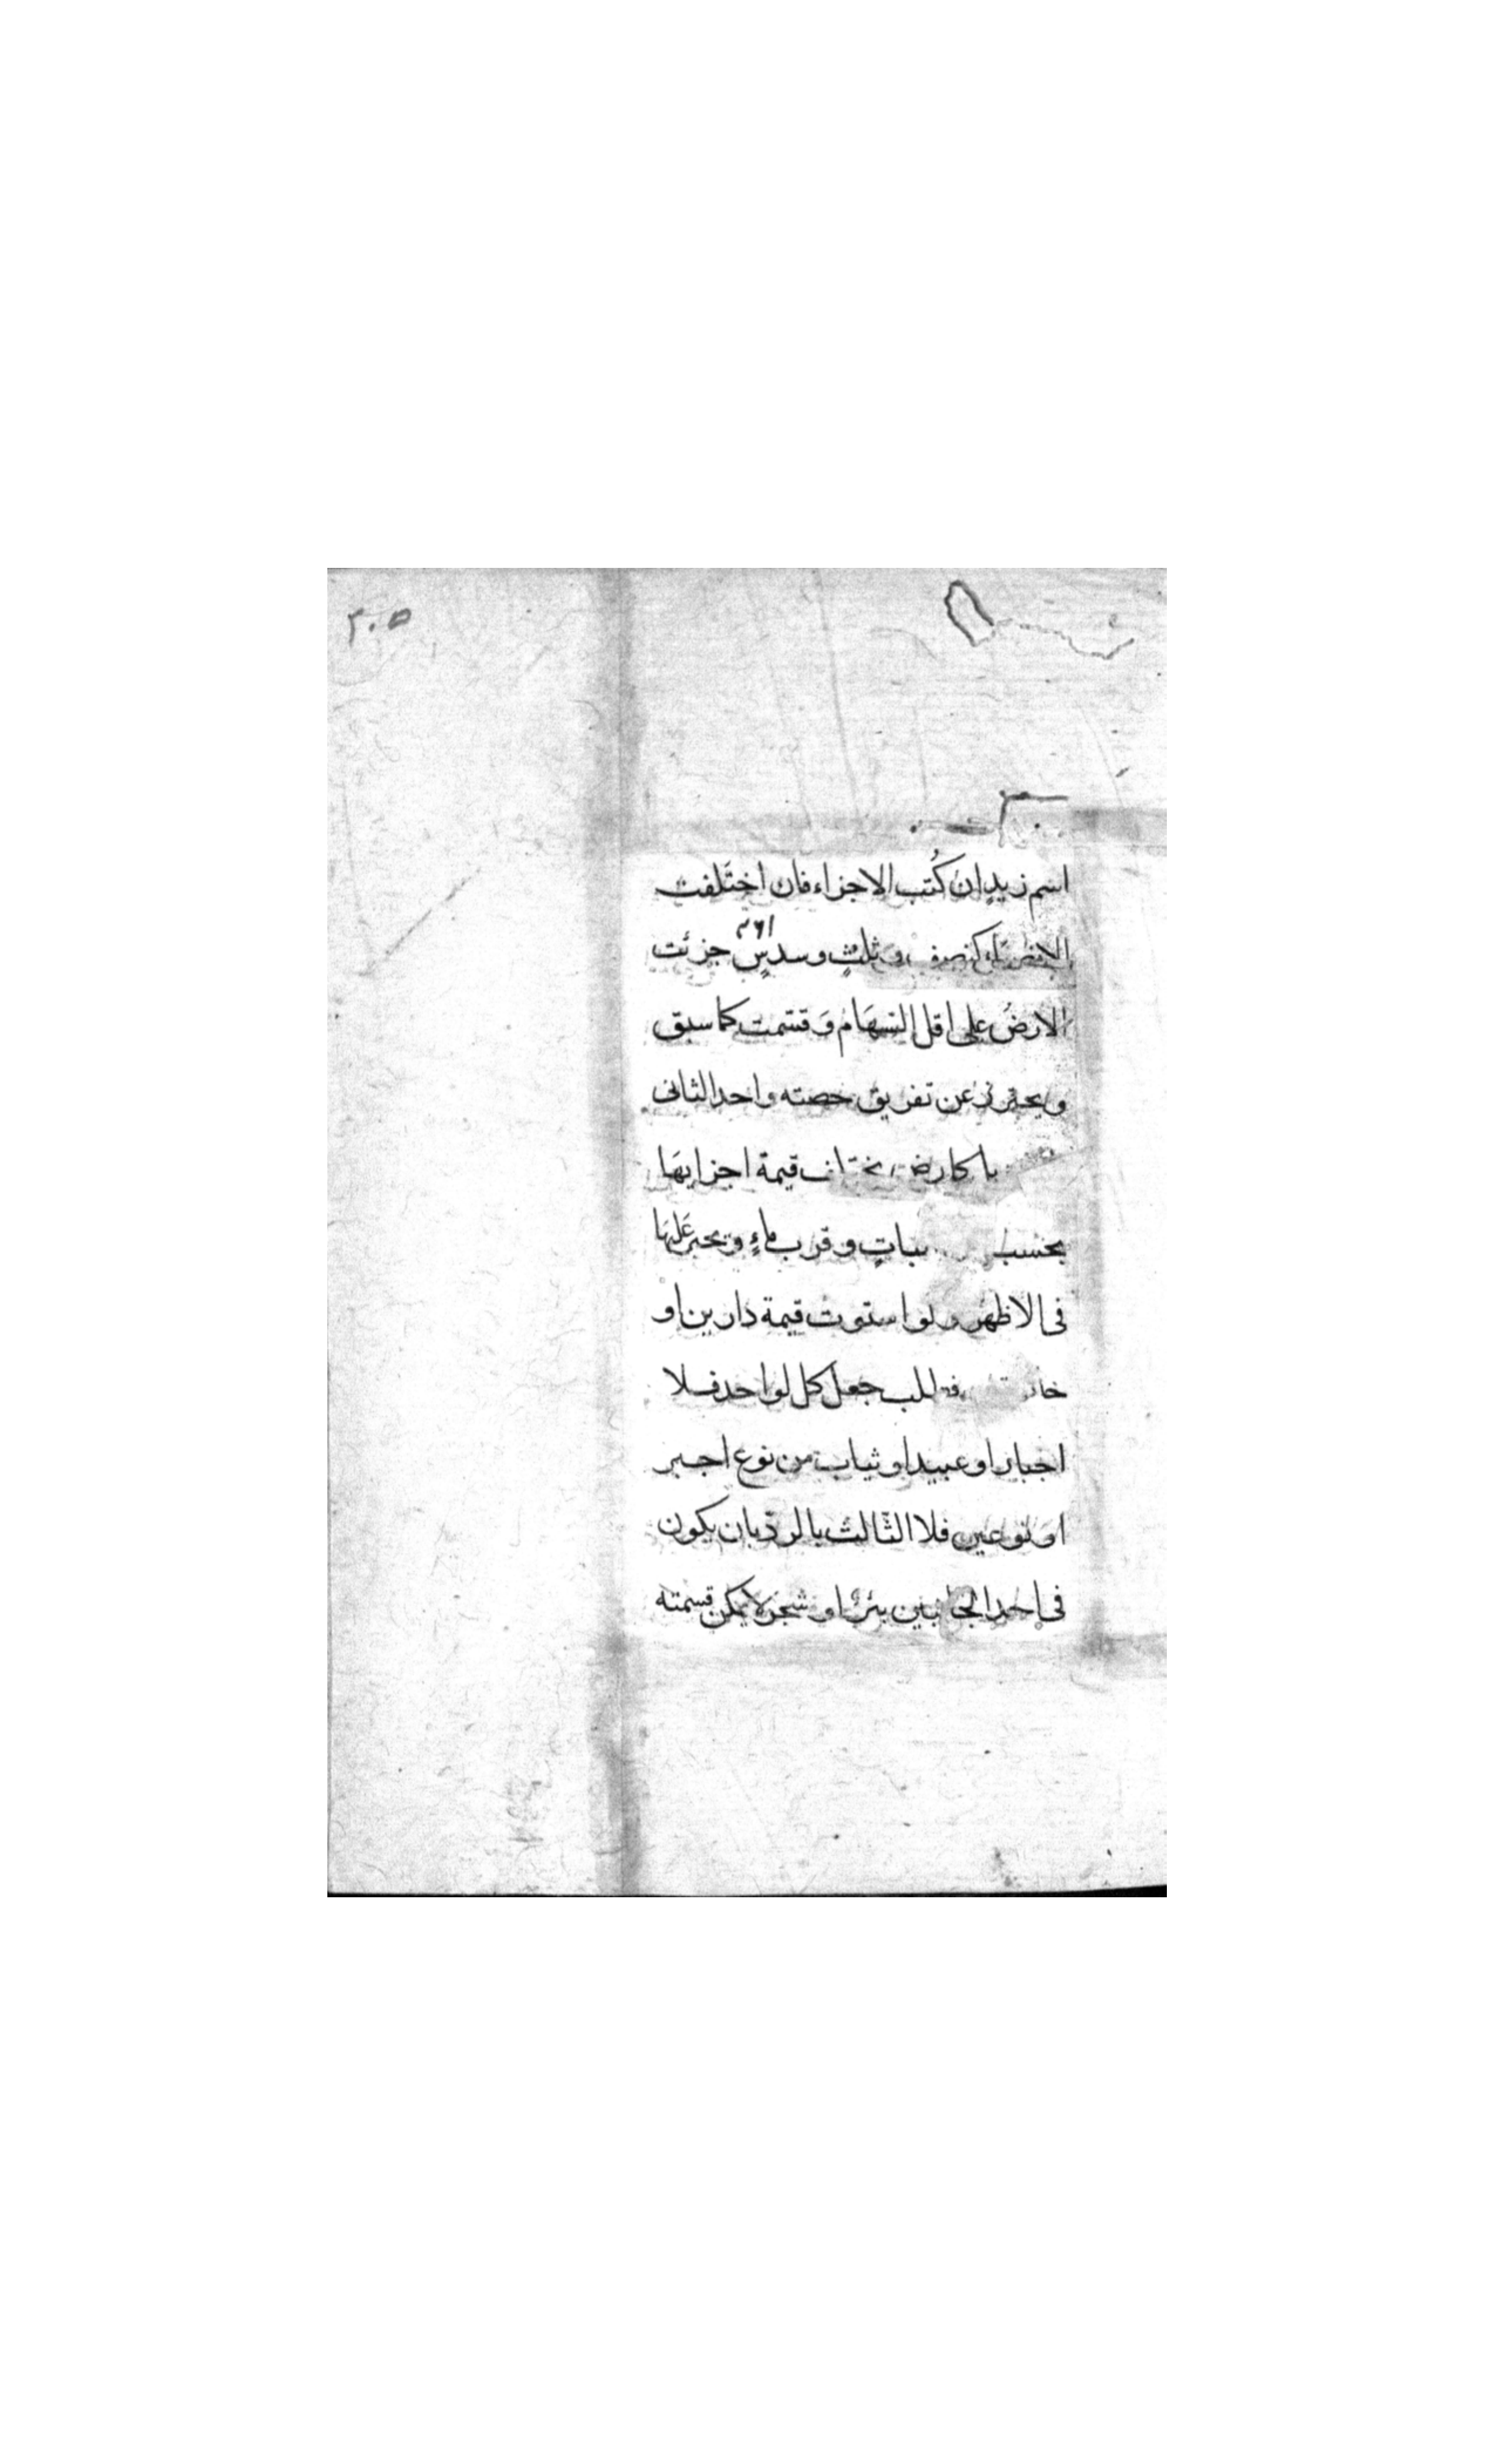 ٣٠٥
اسم زيدٍ ان كُتب الاجزاء فان اختلفت
الانصباء كنصف وثلثٍ وسدسٍ جزئت
الارضُ على اقل السهَام وَقسّمت كما سبق
ويحترز عن تفريق حصته واحد الثانى
كارض تختلف قيمة اجزايهَا
بحسب وقرب ماءٍ ويجبر عَليهَا
فى الاظهر ولو استوت قيمة دارين او
فطلب جعل كل لواحد فلا
اجبار او عبيد او ثياب من نوع اجبر
او نوعين فلا الثّالث بالردّ بان يكون
فى احد الجانبين بئر او شجر لا يمكن قسمته